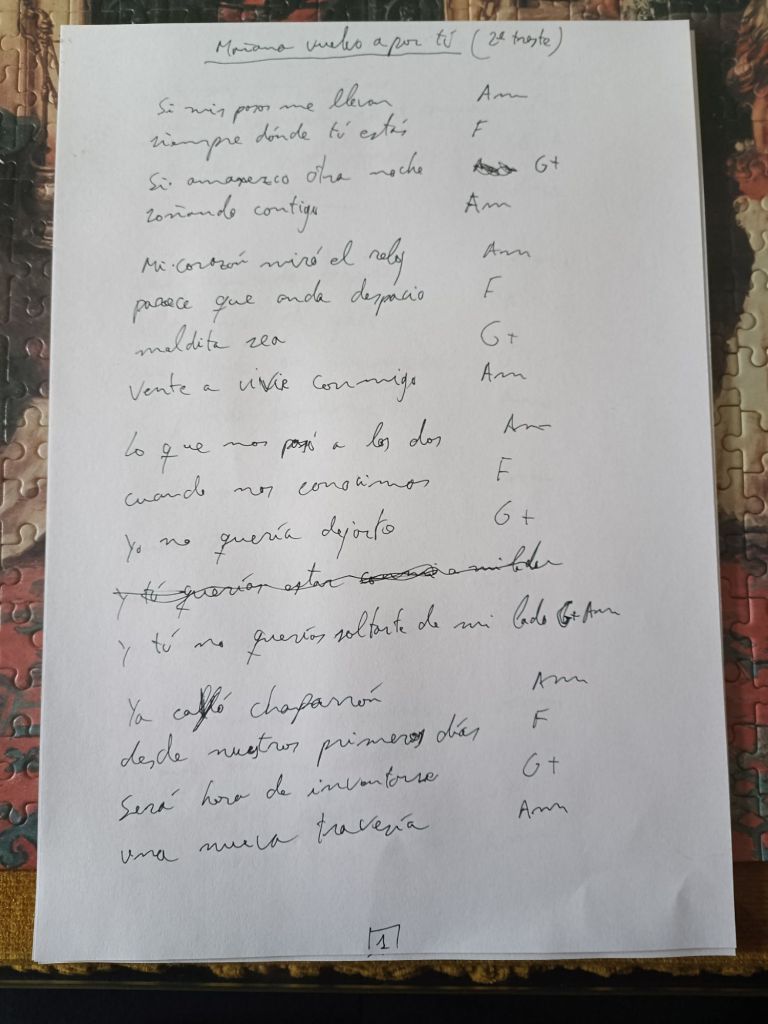 Mañana vuelvo a por tí (2º traste)
Si mis pasos me llevan Am
siempre dónde tú estás F
Si amanezco otra noche G+
soñando contigo Am
Mi corazón miró el reloj Am
parece que anda despacio F
maldita sea G+
Vente a vivir conmigo Am
Lo que nos pasó a los dos Am
cuando nos conocimos F
Yo no quería dejarte G+
Y tú querías estar a mi lado
Y tú no querías soltarte de mi lado G+ Am
Ya cayó chaparrón Am
desde nuestros primeros días F
Será hora de inventarse G+
una nueva travesía Am
1